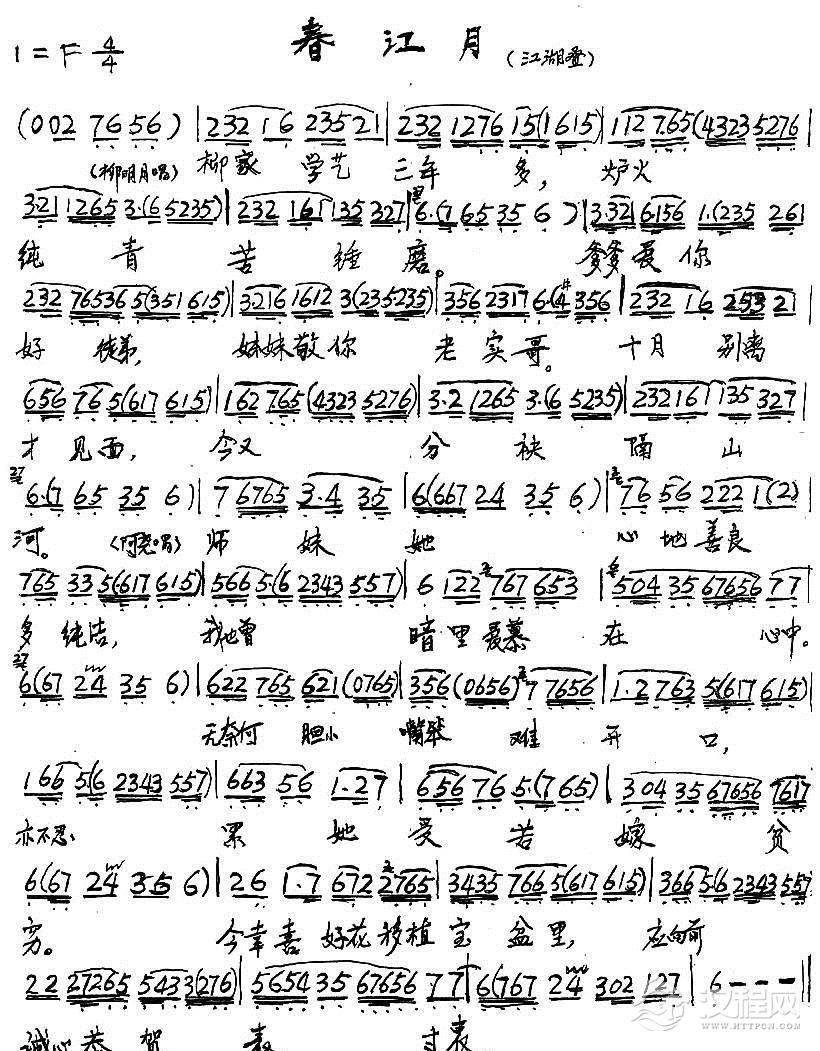 1=F 4/4 春江月 (江湖叠)
(002 7656) | 232 16 23521 | 232 1276 15(1615) | 112 765(4323 5276 |
(柳明月唱) 柳家 学艺 三年 多, 炉火
3·21 1265 3·(6 5235) | 232 161 135 327 | 6·(7 65 35 6) | 3·32 6·156 1·(235 261
纯 青 苦 锤 磨。 爹爹爱你
232 765365(351 615) | 3216 1612 3(235235) | 356 2317 6·(4 356 | 232 16 2532 21 |
好 徒弟, 妹妹敬你 老实哥。 十月 别离
656 76 5(617 615) | 162 765(4323 5276) | 3·2 1265 3·(6 5235) | 232161 135 327 |
才 见面, 今又 分 袂 隔 山
6·(7 65 35 6) | 7 6765 3·4 35 | 6(667 24 35 6) | 76 56 2221(2) |
河。 (阿尧唱) 师 妹 她 心地善良
765 335(617 615) | 5665·(6 2343 557) | 6 122 767 653 | 504 35 67656 77 |
多纯洁, 我也曾 暗里爱慕 在 心中。
6(67 24 35 6) | 622 765 621(0765) | 356(0656) 77656 | 1·2 763 5(617 615) |
无奈何 胆小 嘴笨 难 开 口,
1665·(6 2343 557) | 663 56 1·27 | 656 76 5·(7 65) | 304 35 67656 7617
亦不忍 累 她 受 苦 嫁 贫
6(67 24 35 6) | 26 1·7 672 2765 | 3435 7665(617 615) | 3665·(6 2343 557
穷。 今幸喜 好花移植宝 盆里, 应向前
22 27265 5433(276) | 5654 35 67656 77 | 6(767 24 302 127 | 6 - - - ||
诚心恭 贺 表 寸表
汉程网
WWW.HTTPCN.COM